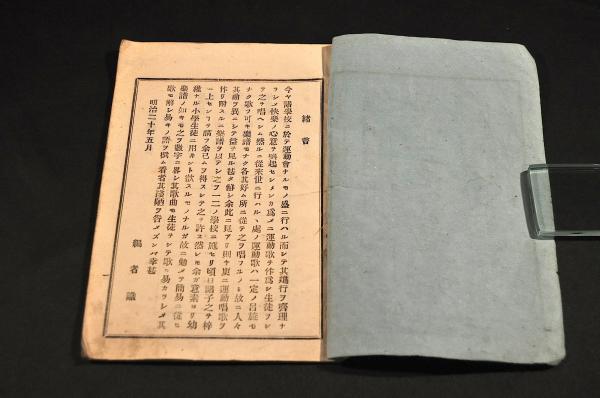 緒言
今ヤ諸學校ニ於テ運動會ナルモノ盛ニ行ハル而シテ其進行ヲ齊理ナ
ラシメ快樂ノ心意ヲ興起セシメンカ爲メニ運動歌ヲ作爲シ生徒ヲシ
テ之ヲ唱ヘシム然ルニ從來世ニ行ハルヽ處ノ運動歌ハ一定ノ呂旋モ
ナク歌フ可キ樂譜モナク各其好ム所ニ從テ之ヲ唱フルノミ故ニ人々
其曲ヲ異ニシテ益ヲ見ル甚タ鮮シ余此ニ見アリ
作リ附スルニ樂譜ヲ以テシ之ヲ一二ノ學校ニ施セリ頃日諸子之ヲ梓
ニ上センコヲ請フ余已ムヲ得スシテ之ヲ許ス然レモ余カ意素ヨリ幼
稚ナル小學生徒ニ用ヰント欲スルモノナルガ故ニ勉メテ簡易ニ從ヒ
樂譜ノ如キモ之ヲ數字ニ畧シ其歌曲モ生徒ヲシテ歌ヒ易カラシメ其
歌モ解シ易キノ語ヲ撰ム看者其淺陋ヲ咎メズンバ幸甚
明治二十年五月
編者識